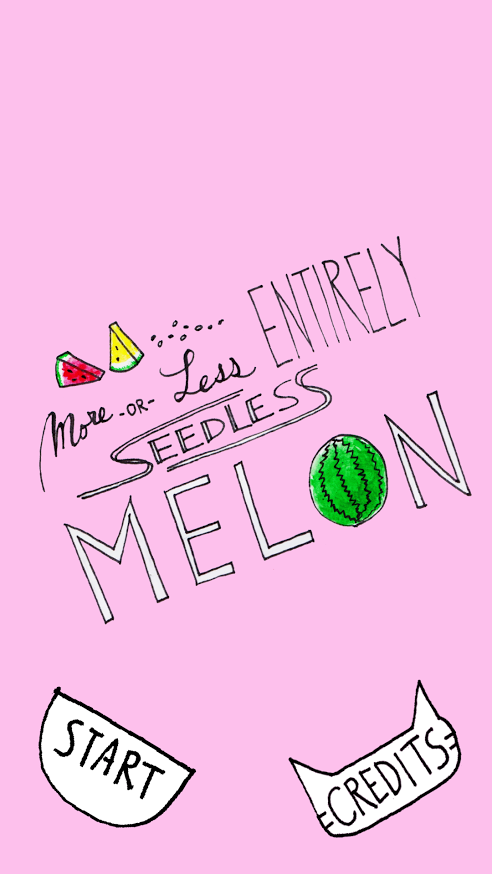 More -OR- Less ENTIRELY
SEEDLESS
MELON
START
CREDITS